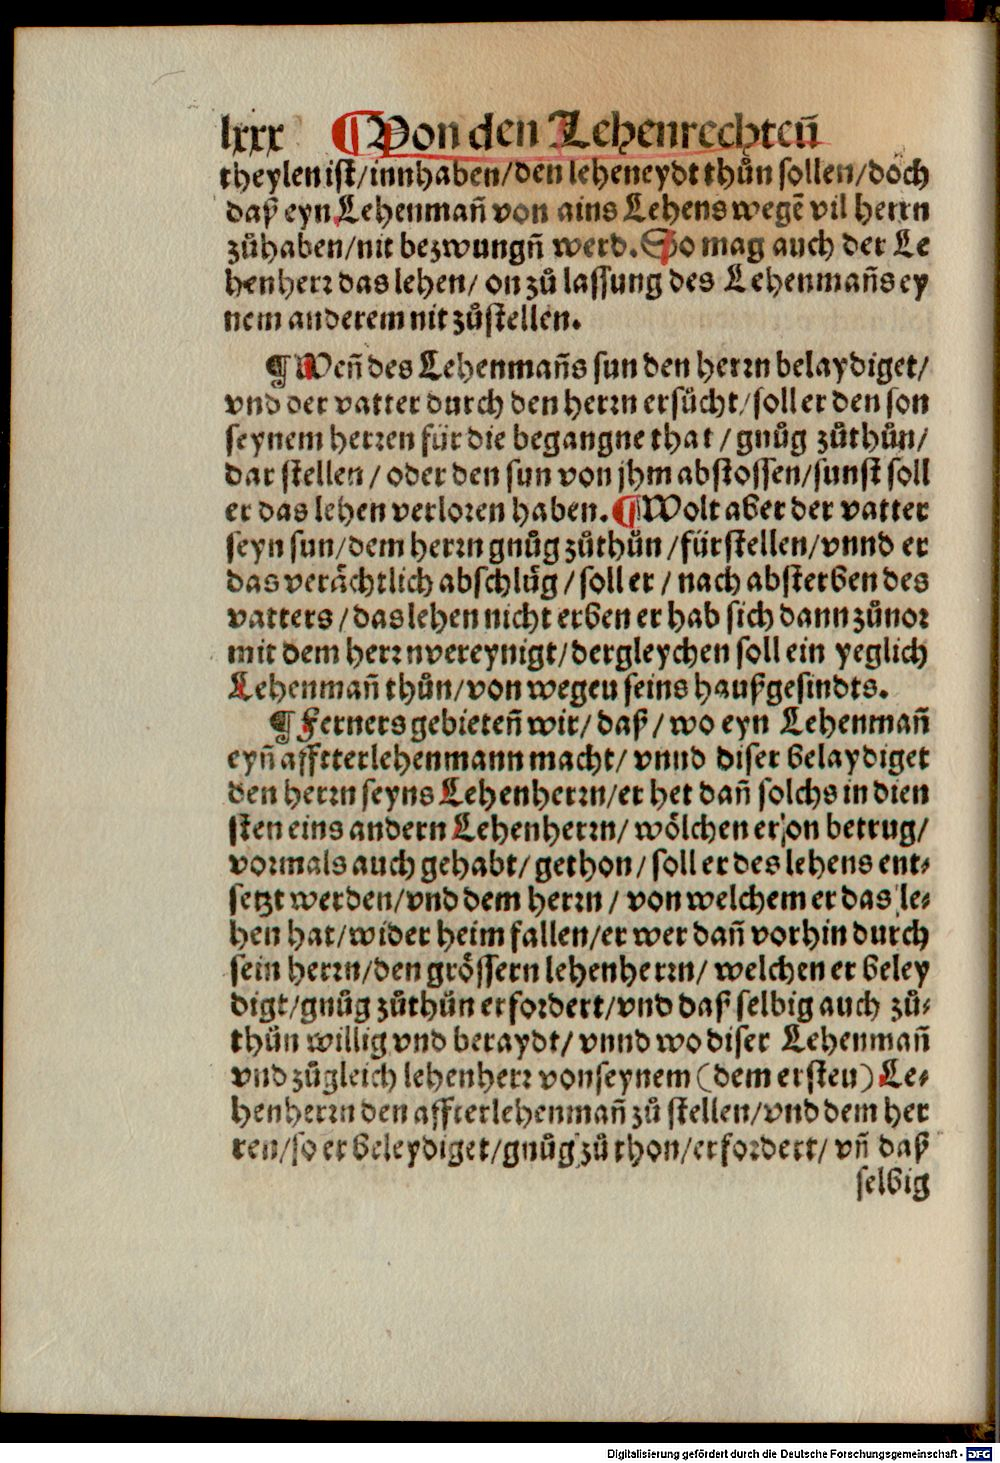 lxxx ¶ Von den Lehenrechteñ
theylen ist/innhaben/den leheneydt thůn sollen/doch
daß eyn Lehenmañ von ains Lehens wegē vil herrn
zůhaben/nit bezwungñ werd. So mag auch der Le
henherr das lehen/ on zů lassung des Lehenmañs ey
nem anderem nit zůstellen.
¶ Weñ des Lehenmañs sun den herrn belaydiget/
vnd der vatter durch den herrn ersůcht/soll er den son
seynem herren für die begangne that/gnůg zůthůn/
dar stellen/oder den sun von jhm abstossen/sunst soll
er das lehen verloren haben. ¶ Wolt aber der vatter
seyn sun/dem herrn gnůg zůthůn/fürstellen/vnnd er
das verächtlich abschlůg/soll er/nach absterben des
vatters/das lehen nicht erben er hab sich dann zůuor
mit dem herrn vereynigt/dergleychen soll ein yeglich
Lehenmañ thůn/von wegen seins haußgesindts.
¶ Ferners gebieteñ wir/daß/wo eyn Lehenmañ
eyñ affterlehenmann macht/ vnnd diser belaydiget
den herrn seyns Lehenherrn/er het dañ solchs in dien
sten eins andern Lehenherrn/wölchen er/on betrug/
vormals auch gehabt/gethon/soll er des lehens ent⸗
setzt werden/vnd dem herrn/von welchem er das le⸗
hen hat/wider heim fallen/er wer dañ vorhin durch
sein herrn/den grössern lehenherrn/welchen er beley
digt/gnůg zůthůn erfordert/vnd daß selbig auch zů⸗
thůn willig vnd beraydt/ vnnd wo diser Lehenmañ
vnd zůgleich lehenherr von seynem (dem ersten) Le⸗
henherrn den affterlehenmañ zů stellen/vnd dem her
ren/so er beleydiget/gnůg zů thon/erfordert/ vñ daß
selbig
Digitalisierung gefördert durch die Deutsche Forschungsgemeinschaft - DFG